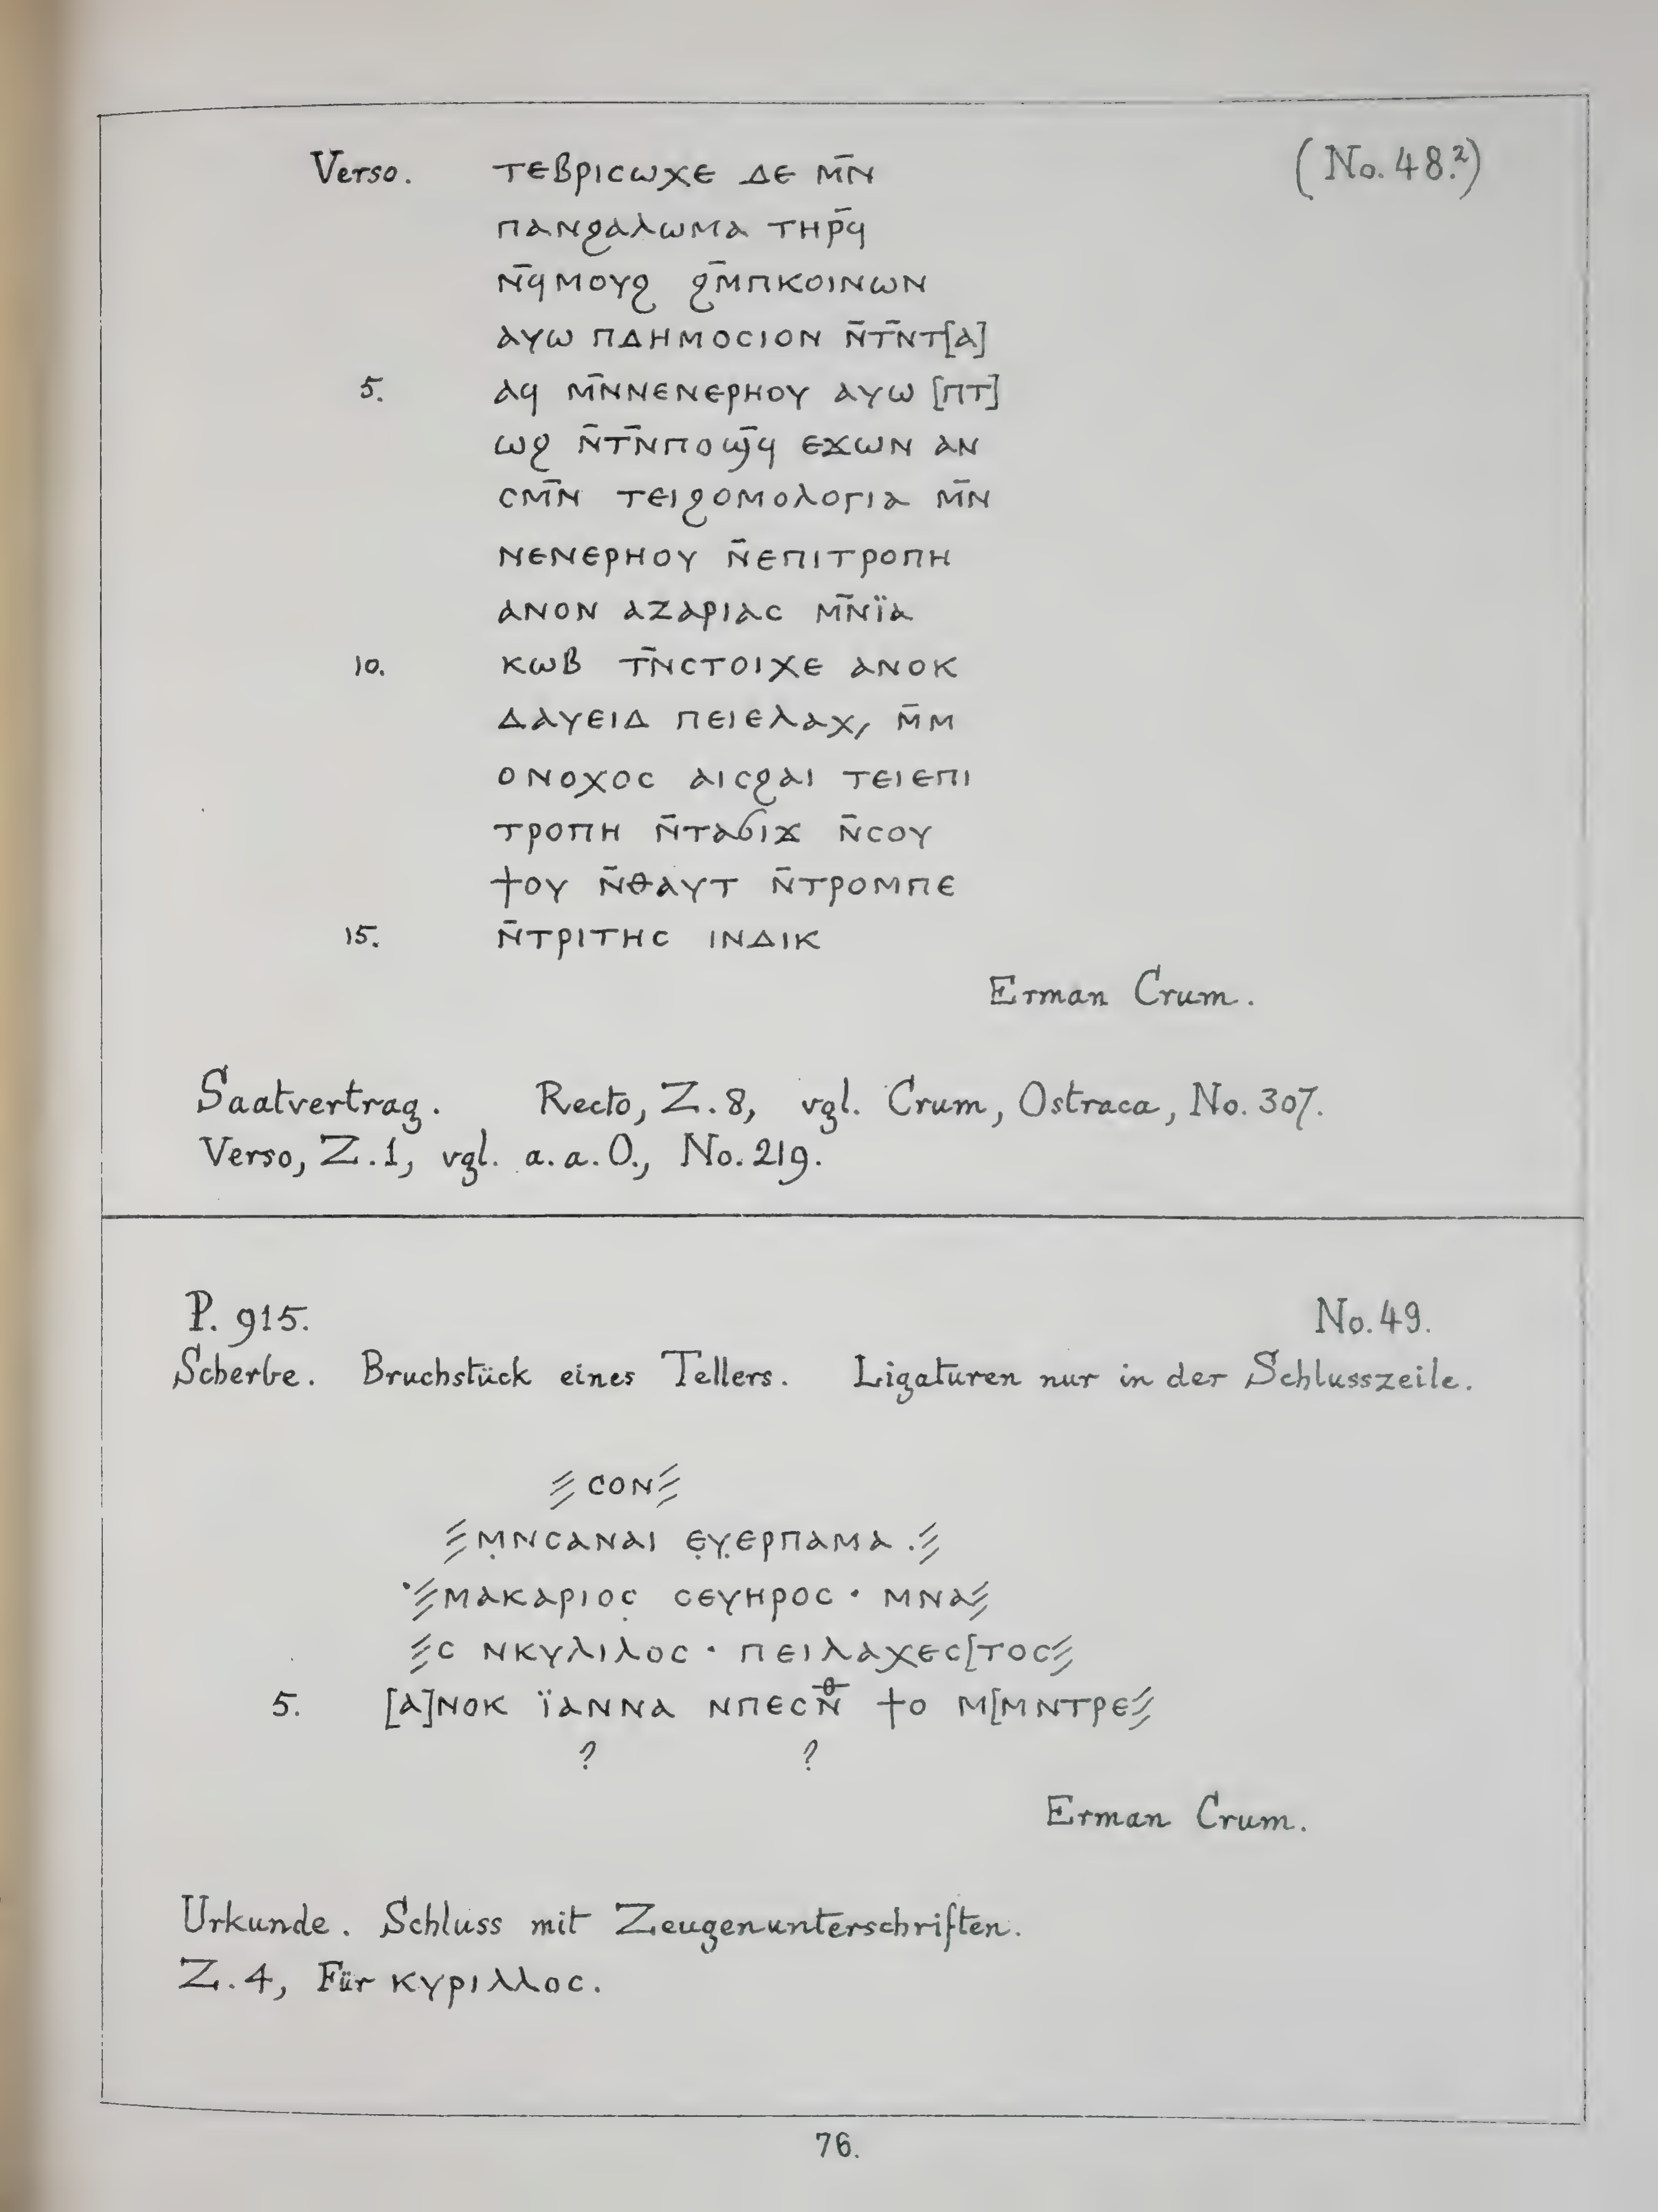 Verso. ⲧⲉⲃⲣⲓⲥⲱⲭⲉ ⲇⲉ ⲙ̄ⲛ (No. 48.²)
ⲡⲁⲛϩⲁⲗⲱⲙⲁ ⲧⲏⲣ̄ϥ
ⲛ̄ϥⲙⲟⲩϩ ϩ̄ⲙⲡⲕⲟⲓⲛⲱⲛ
ⲁⲩⲱ ⲡⲇⲏⲙⲟⲥⲓⲟⲛ ⲛ̄ⲧ̄ⲛⲧ[ⲁ]
5. ⲁϥ ⲙ̄ⲛⲛⲉⲛⲉⲣⲏⲟⲩ ⲁⲩⲱ [ⲡⲧ]
ⲱϩ ⲛ̄ⲧ̄ⲛⲡⲟϣ̄ϥ ⲉϫⲱⲛ ⲁⲛ
ⲥⲙ̄ⲛ ⲧⲉⲓϩⲟⲙⲟⲗⲟⲅⲓⲁ ⲙ̄ⲛ
ⲛⲉⲛⲉⲣⲏⲟⲩ ⲛ̄ⲉⲡⲓⲧⲣⲟⲡⲏ
ⲁⲛⲟⲛ ⲁⲍⲁⲣⲓⲁⲥ ⲙ̄ⲛⲓ̈ⲁ
10. ⲕⲱⲃ ⲧ̄ⲛⲥⲧⲟⲓⲭⲉ ⲁⲛⲟⲕ
ⲇⲁⲩⲉⲓⲇ ⲡⲉⲓⲉⲗⲁⲭ, ⲙ̄ⲙ
ⲟⲛⲟⲭⲟⲥ ⲁⲓⲥϩⲁⲓ ⲧⲉⲓⲉⲡⲓ
ⲧⲣⲟⲡⲏ ⲛ̄ⲧⲁϭⲓϫ ⲛ̄ⲥⲟⲩ
ϯⲟⲩ ⲛ̄ⲑⲁⲩⲧ ⲛ̄ⲧⲣⲟⲙⲡⲉ
15. ⲛ̄ⲧⲣⲓⲧⲏⲥ ⲓⲛⲇⲓⲕ
Erman Crum.
Saatvertrag. Recto, Z. 8, vgl. Crum, Ostraca, No. 307.
Verso, Z. 1, vgl. a. a. O., No. 219.
P. 915. No. 49.
Scherbe. Bruchstück eines Tellers. Ligaturen nur in der Schlusszeile.
⫽ ⲥⲟⲛ⫽
⫽ⲙ̣ⲛⲥⲁⲛⲁⲓ ⲉ̣ⲩ̣ⲉⲣⲡⲁⲙⲁ .⫽
·⫽ⲙⲁⲕⲁⲣⲓⲟⲥ̣ ⲥⲉⲩⲏⲣⲟⲥ · ⲙⲛⲁ⫽
⫽ⲥ ⲛⲕⲩⲗⲓⲗⲟⲥ · ⲡⲉⲓⲗⲁⲭⲉⲥ[ⲧⲟⲥ⫽
5. [ⲁ]ⲛⲟⲕ ⲓ̈ⲁⲛⲛⲁ ⲛⲡⲉⲥⲛ̄ⲑ ϯⲟ ⲙ[ⲙⲛⲧⲣⲉ⫽
? ?
Erman Crum.
Urkunde. Schluss mit Zeugenunterschriften.
Z. 4, Für ⲕⲩⲣⲓⲗⲗⲟⲥ.
76.